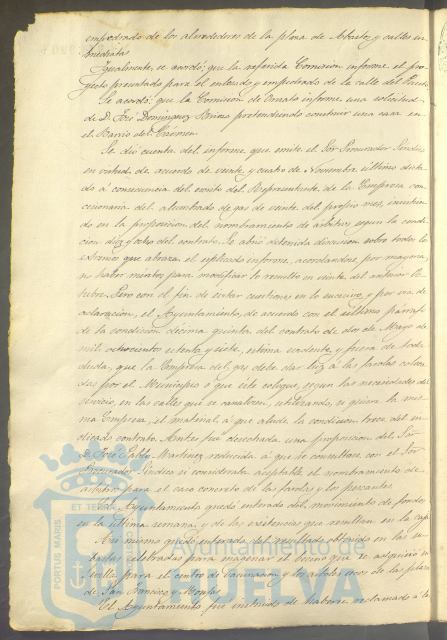 empedrado de los alrededores de la plaza de Abastos y calles in-
mediatas
Igualmente se acordó: que la referida Comision informe el pro-
yecto presentado para el enlosado y empedrado de la calle del Puerto
Se acordó: que la Comision de Ornato informe una solicitud
de D. José Dominguez pretendiendo construir una casa en
el Barrio del Cármen.
Se dió cuenta del informe que emite el Sor Procurador Síndico
en virtud de acuerdo de veinte y cuatro de Noviembre último dicta-
do á consecuencia del escrito del Representante de la Empresa con-
cesionaria del alumbrado de gas de veinte del propio mes, insistien-
do en la proposicion del nombramiento de árbitros segun la condi-
cion diez y ocho del contrato. Se abrió detenida discusion sobre todos los
estremos que abraza el esplicado informe, acordandose, por mayoria,
no haber méritos para modificar lo resuelto en veinte del anterior Oc-
tubre. Pero con el fin de evitar cuestiones en lo sucesivo, y por via de
aclaracion, el Ayuntamiento, de acuerdo con el último párrafo
de la condicion décima quinta del contrato de dos de Mayo de
mil ochocientos setenta y siete, estima evidente y fuera de toda
duda, que la Empresa del gas debe dar luz á las farolas coloca-
das por el Municipio ó que este coloque, segun las necesidades del
servicio, en las calles que se canalicen, utilizando, si quiere la mis-
ma Empresa, el material á que alude la condicion trece del in-
dicado contrato. Antes fué desechada una proposicion del Sor
D. José Pablo Martinez reducida á que se consultase con el Sor
Procurador Síndico si consideraba aceptable el nombramiento de
árbitros para el caso concreto de las farolas y los pescantes
El Ayuntamiento quedó enterado del movimiento de fondos
en la última semana, y de las existencias que resultan en la caja
Así mismo quedó enterado del resultado obtenido en las su-
bastas celebradas para enagenar el becerro que se adquirió en
Sevilla para el centro de vacunacion y los árboles secos de las plazas
de San Francisco y Monjas.
El Ayuntamiento fué instruido de haberse reclamado á la
PORTUS MARIS
ET TERRAE
Ayuntamiento de
HUELVA